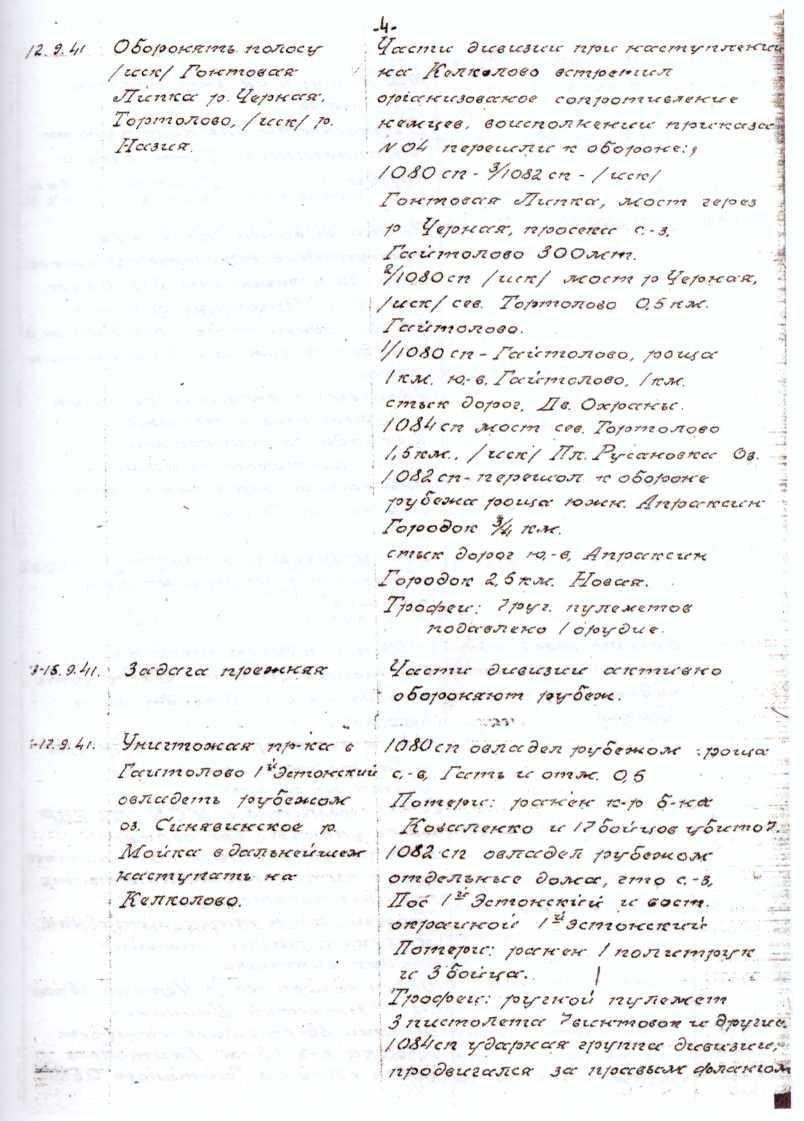 -4-
12.9.41
Оборонять полосу
/иск/ Гонтовая
Липка р. Черная,
Тортолово, /иск/ р.
Назия.
Части дивизии при наступлении
на Келколово встретил
организованое сопротивление
немцев, воисполнении приказа
N04 перешли к обороне:,
1080 сп - 3/1082 сп - /иск/
Гонтовая Липка, мост через
р Черная, просека с.-з,
Гайтолово 300мт.
2/1080 сп /иск/ мост р Черная,
/иск/ сев. Тортолово 0,5 км.
Гайтолово.
1/1080 сп - Гайтолово, роща
1 км. ю.-в, Гайтолово, 1 км.
стык дорог, Дв. Охраны.
1084 сп мост сев. Тортолово
1,5 км., /иск/ Пл. Русановка Оз.
1082 сп- перешол к обороне
рубежа роща южн. Апраксин
Городок 3/4 км.
стык дорог ю,-в, Апраксин
Городок 2,5 км. Новая.
Трофеи: 7 руч. пулеметов
подавлено 1 орудие.
3-15.9.41.
Задача прежняя
Части дивизии активно
обороняют рубеж.
-17.9.41.
Уничтожая пр-ка в
Гаитолово 1й Эстонский
овладеть рубежом
оз. Синявинское р.
Мойка в дальнейшем
наступать на
Келколово.
1080 сп овладел рубежом роща
с,-в, Гать и отм. 0,5
Потери: ранен к-р б-на
Коваленко и 17 бойцов убито 7.
1082 сп овладел рубежом
отдельные дома, что с.-з,
Пос 1й Эстонский и вост.
окраиной 1й Эстонский
Потери: ранен 1 политрук
и 3 бойца.
Трофеи: ручной пулемет
3 пистолета 7 винтовок и другие.
1084 сп ударная группа дивизии,
продвигался за правым флангом